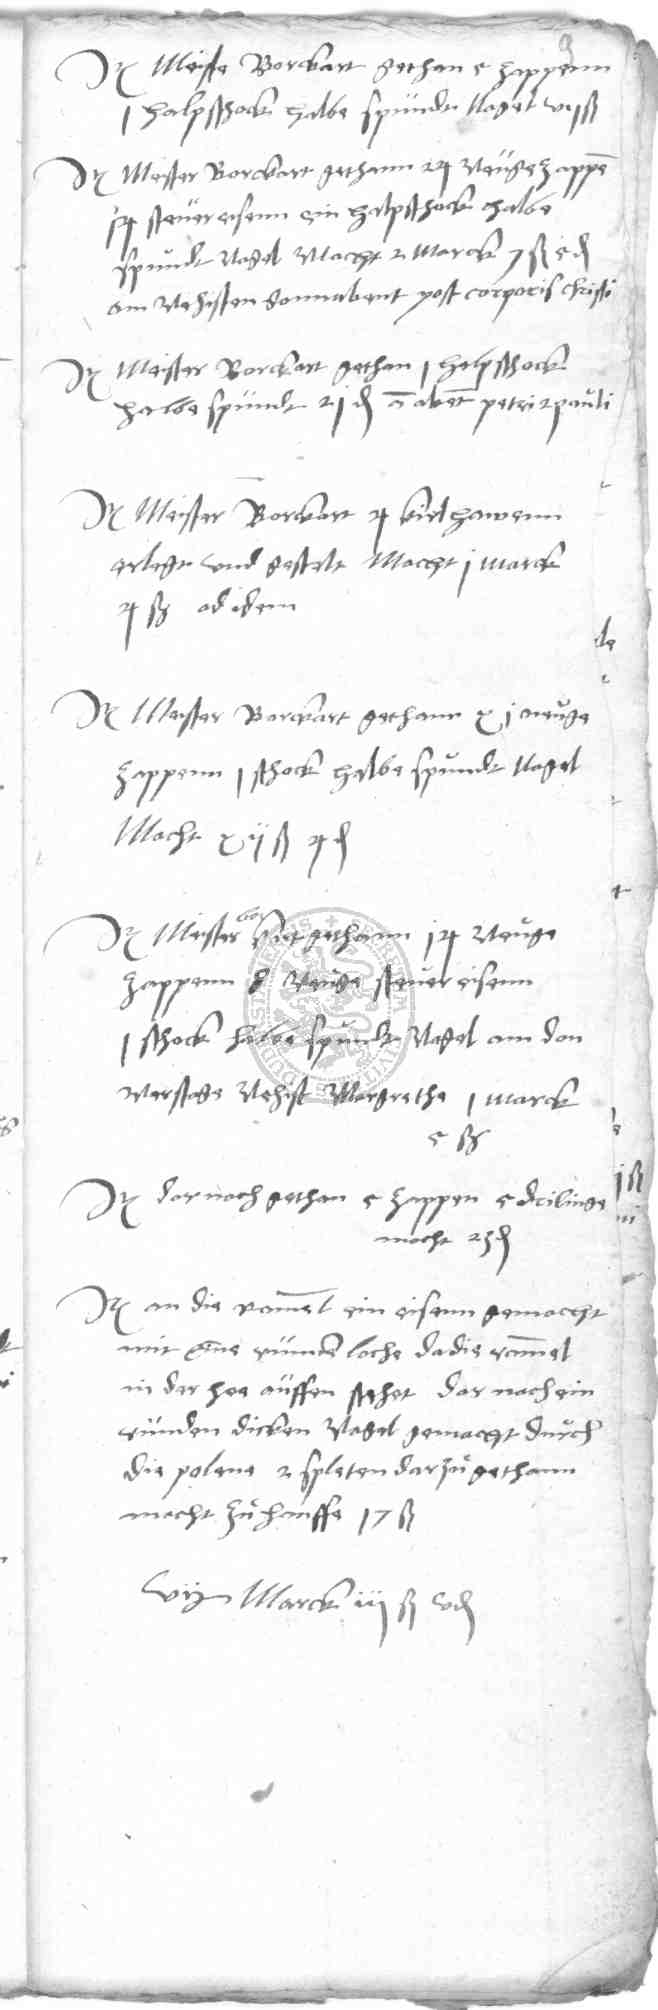 It Meister Borckart gethan 5 zappenn
1 halpschock halbe spundt Nagel vi ß
It Meister Borckart gethann 24 Neuge zappē
4 steuer eisenn ein halpschock halbe
spundt Nagel Macht 2 Marck 7 ß 5 d
am Nehisten sonnabent post corporis christi
It Meister Borckart gethan 1 halpschock
halbe spundt 21 d ā abēt petri 2 pauli
It Meister Borckart 4 kirlhawenn
erlegt und gestelt Macht j marck
4 ß ad idem
It Meister Borckart gethann xj neuge
zappenn 1 schock halbe spundt Nagel
Macht xij ß 4 d
It Meister bor kart gethann 14 Neuge
zappenn 8 Neuge steuer eisenn
1 schock halbe spundt Nagel am don
nerstage Nehist Margrethe 1 marck
5 ß
It dor noch gethan 5 zappen 5 dcilinge
macht 23 d
It an die ramel ein eisenn gemacht
mit eine runden loche da die ramel
in der hoe auffen stehet dar noch ein
runden dicken Nagel gemacht durch
die polene 2 spleten darzu gethann
macht zu hauffe 17 ß
vij Marck iij ß v d